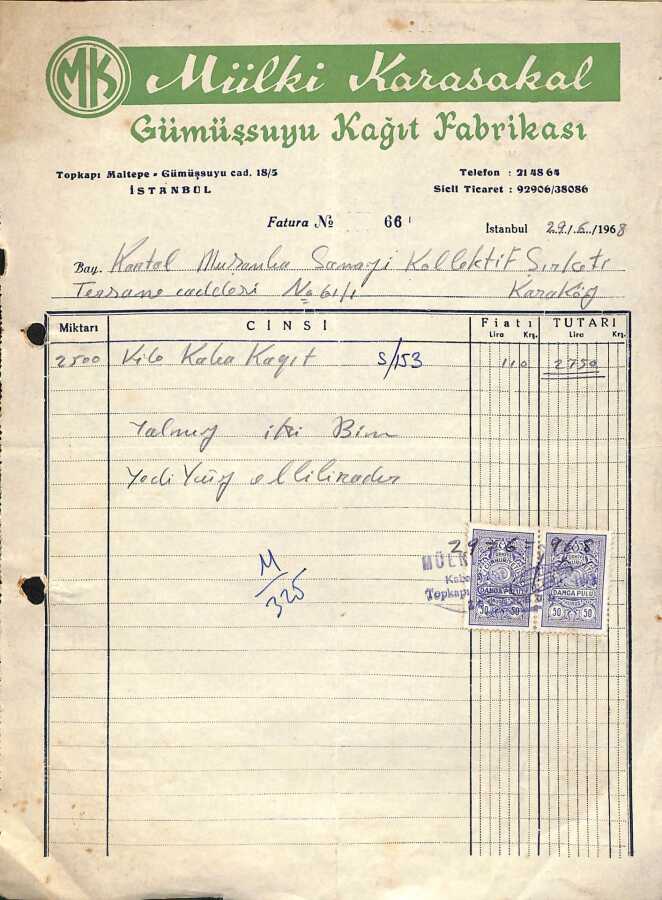 MK Mülki Karasakal
Gümüşsuyu Kağıt Fabrikası
Topkapı Maltepe - Gümüşsuyu cad. 18/5
İSTANBUL
Telefon : 21 48 64
Sicil Ticaret : 92906/38086
Fatura № 66
İstanbul 29/6/1968
Bay. Kartal Muşamba Sanayi Kollektif Şirketi
Tersane caddesi No 61/1 Karaköy
Miktarı CİNSİ Fiatı TUTARI
Lira Krş. Lira Krş.
2500 Kilo Kaba Kağıt S/153 110 2750
Yalnız iki Bin
Yedi Yüz elli liradır
M/325
29 6 968
MÜLK
Topkapı
DAMGA PULU DAMGA PULU
50 50 50 50